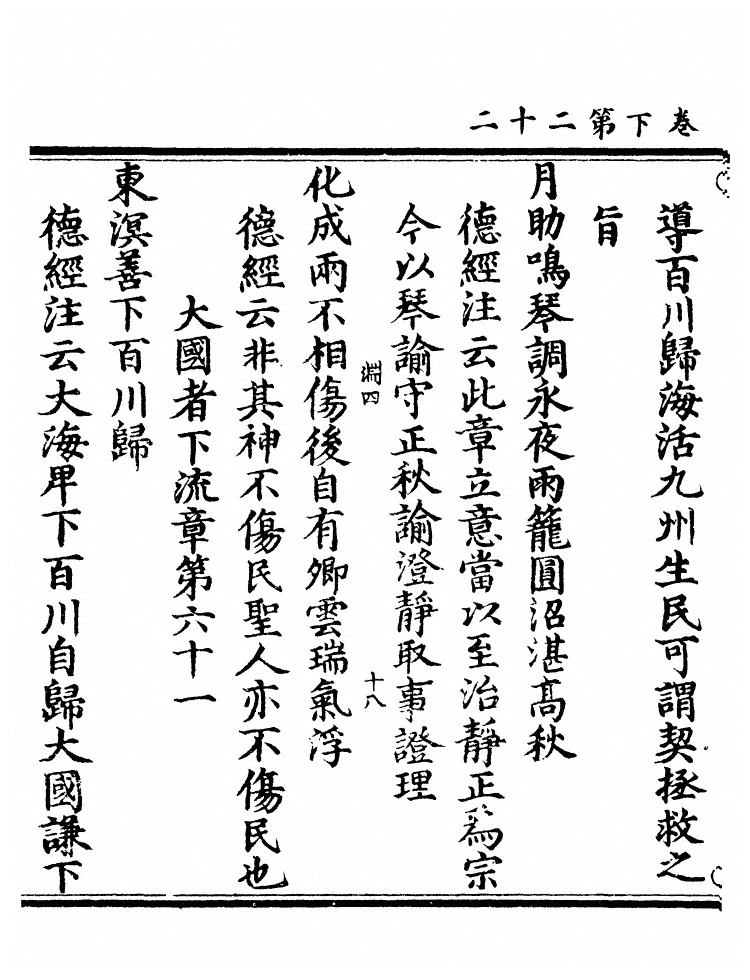 卷下第二十二
導百川歸海活九州生民可謂契拯救之
旨
月助鳴琴調永夜雨籠圓沼湛高秋
德經注云此章立意當以至治靜正爲宗
今以琴諭守正秋諭澄靜取事證理
淵四
十八
化成兩不相傷後自有卿雲瑞氣浮
德經云非其神不傷民聖人亦不傷民也
大國者下流章第六十一
東溟善下百川歸
德經注云大海卑下百川自歸大國謙下